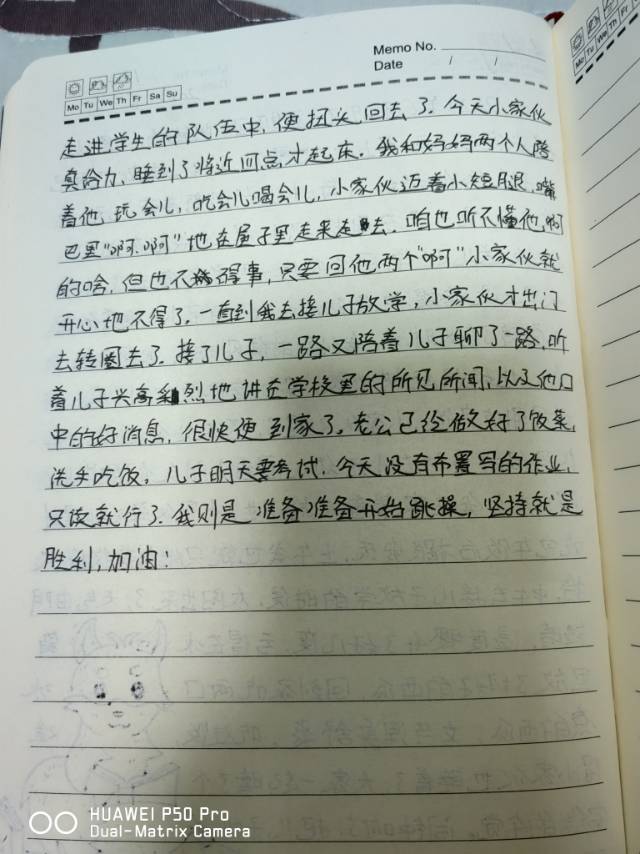 Memo No.
Date / /
Mo Tu We Th Fr Sa Su
走进学生的队伍中，便扭头回去了。今天小家伙
真给力，睡到了将近四点才起床。我和妈妈两个人陪
着他玩会儿，吃会儿喝会儿，小家伙迈着小短腿，嘴
巴里"啊.啊"地在屋子里走来走去，咱也听不懂他啊
的啥，但也不碍事，只要回他两个"啊"小家伙就
开心地不得了。一直到我去接儿子放学，小家伙才出门
去转圈去了。接了儿子，一路又陪着儿子聊了一路，听
着儿子兴高采烈地讲在学校里的所见所闻，以及他口
中的好消息，很快便到家了。老公已经做好了饭菜，
洗手吃饭，儿子明天要考试，今天没有布置写的作业，
只读就行了。我则是准备准备开始跳操，坚持就是
胜利，加油！
HUAWEI P50 Pro
Dual-Matrix Camera